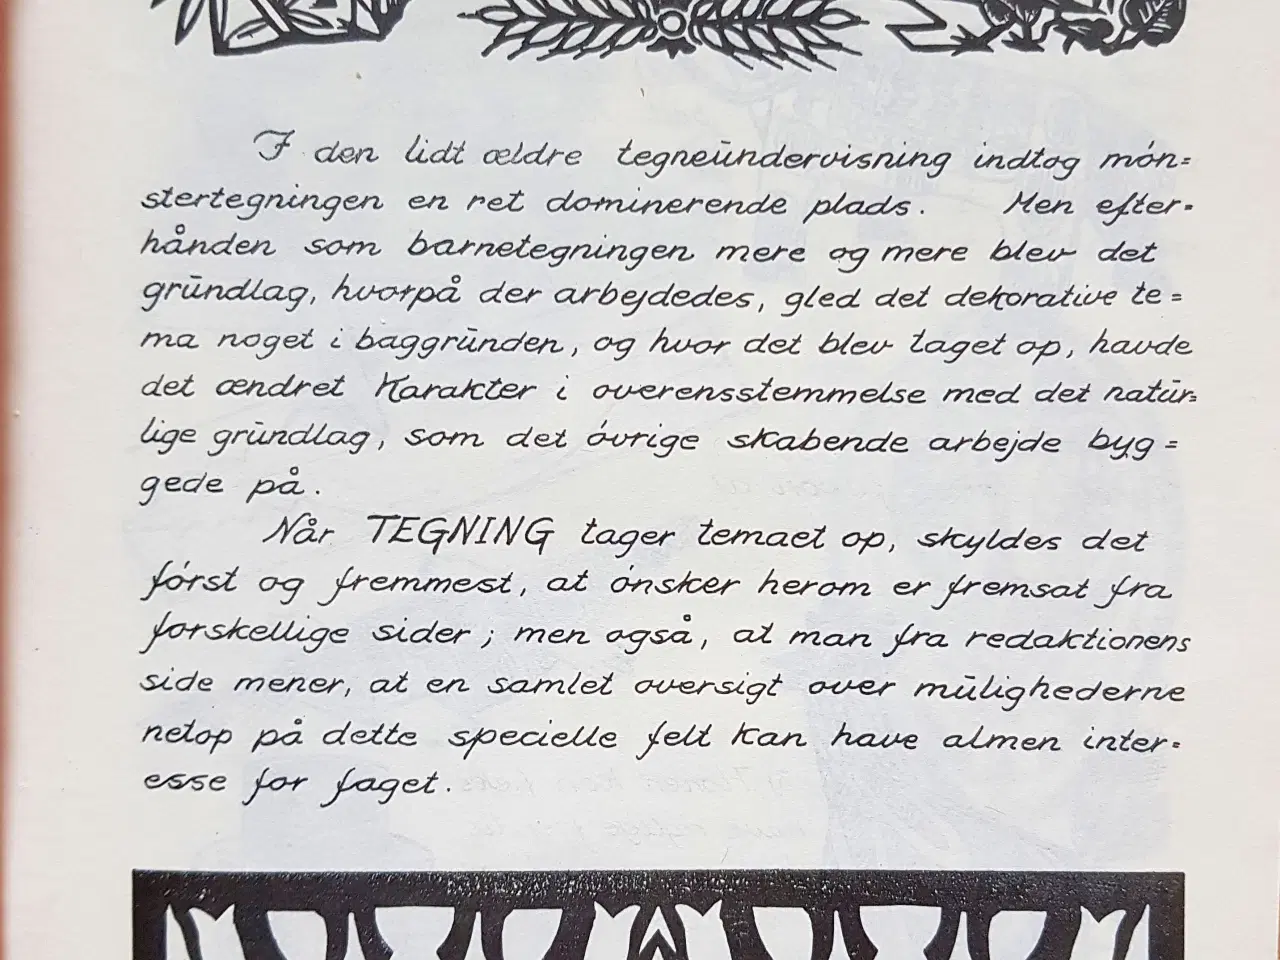 I den lidt ældre tegneūndervisning indtog món=
stertegningen en ret dominerende plads. Men efter=
hånden som barnetegningen mere og mere blev det
grūndlag, hvorpå der arbejdedes, gled det dekorative te=
ma noget i baggrūnden, og hvor det blev taget op, havde
det ændret Karakter i overensstemmelse med det natūr=
lige grūndlag, som det óvrige skabende arbejde byg=
gede på.
Når TEGNING tager temaet op, skyldes det
fórst og fremmest, at ónsker herom er fremsat fra
forskellige sider; men også, at man fra redaktionens
side mener, at en samlet oversigt over mūlighederne
netop på dette specielle felt kan have almen inter=
esse for faget.